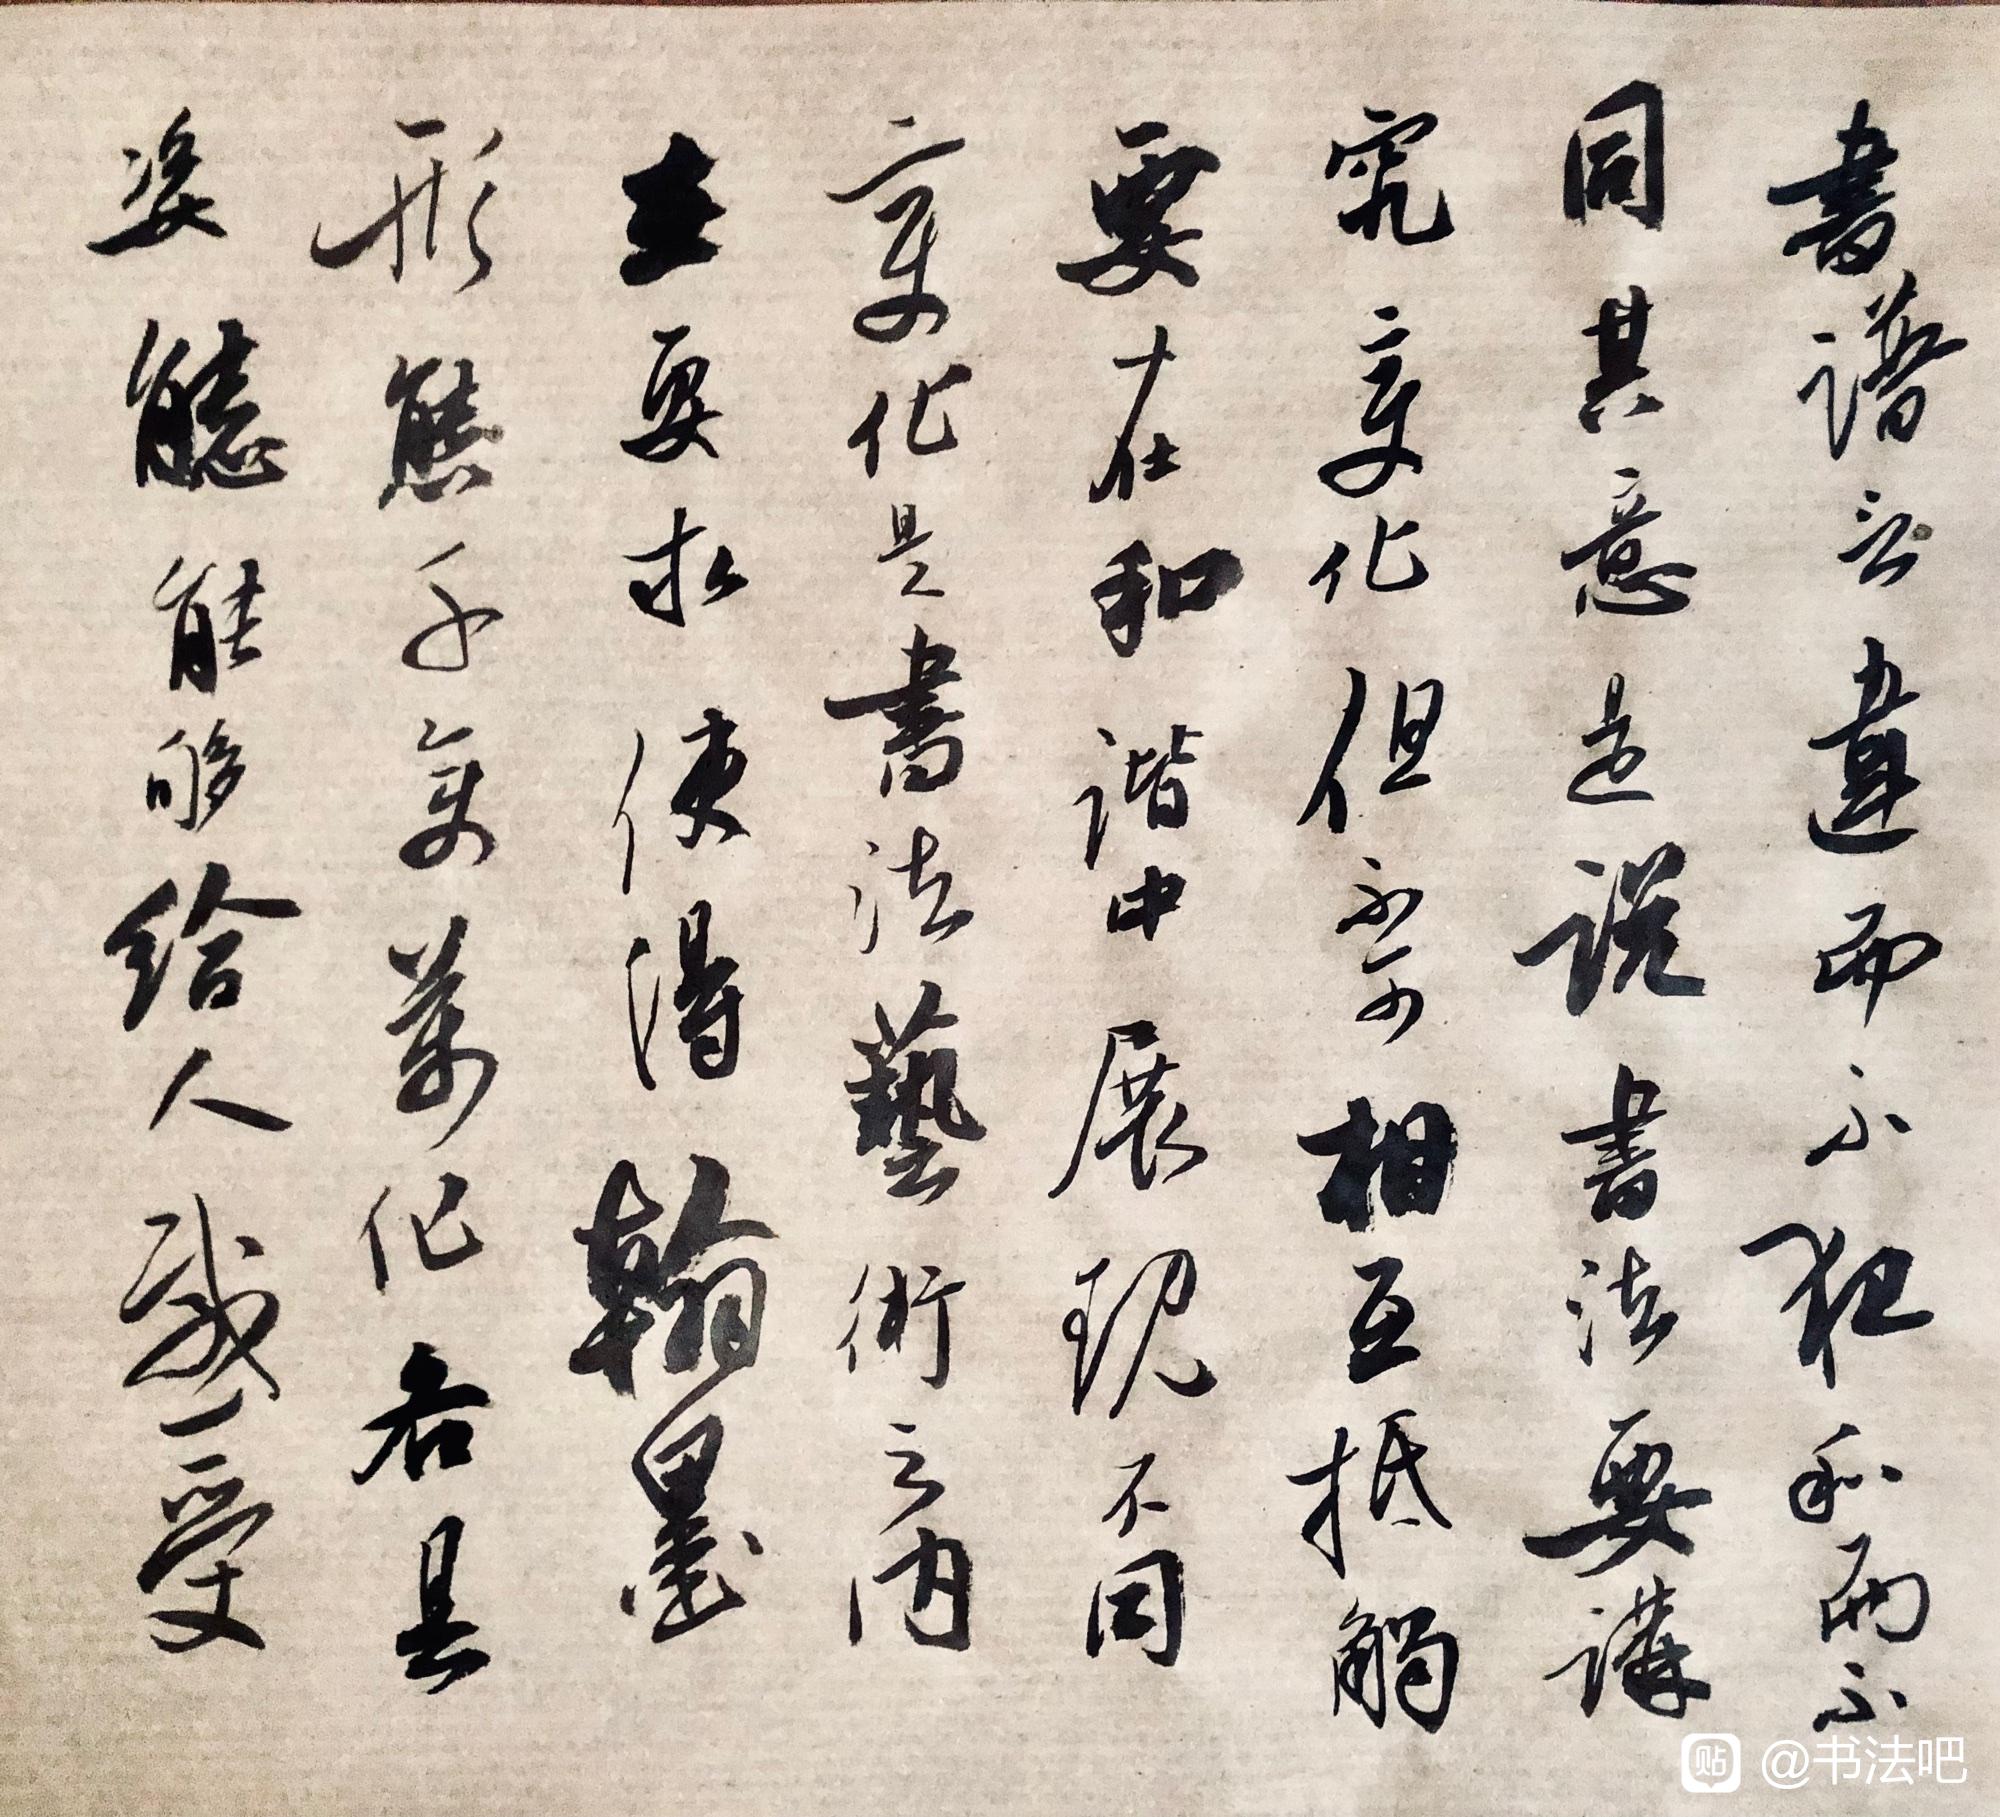 書譜云違而不犯和而不
同其意是説書法要講
究變化但不可相互抵觸
要在和谐中展現不同
變化是書法藝術之内
在要求使得翰墨
形態千變萬化各具
姿態能够给人感受
贴 @书法吧